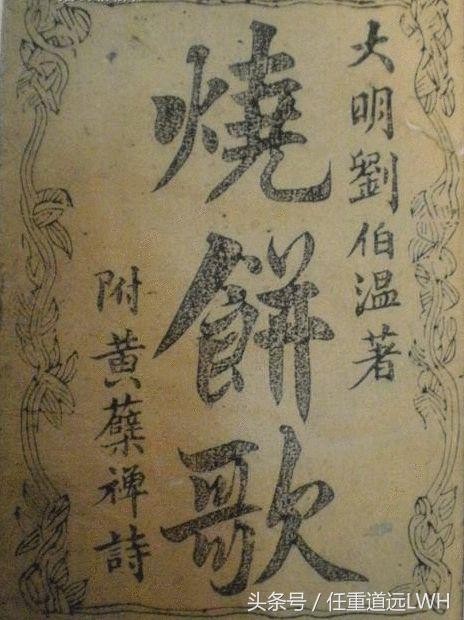 大明劉伯温著
燒餅歌
附黄蘗禅詩
头条号 / 任重道远LWH